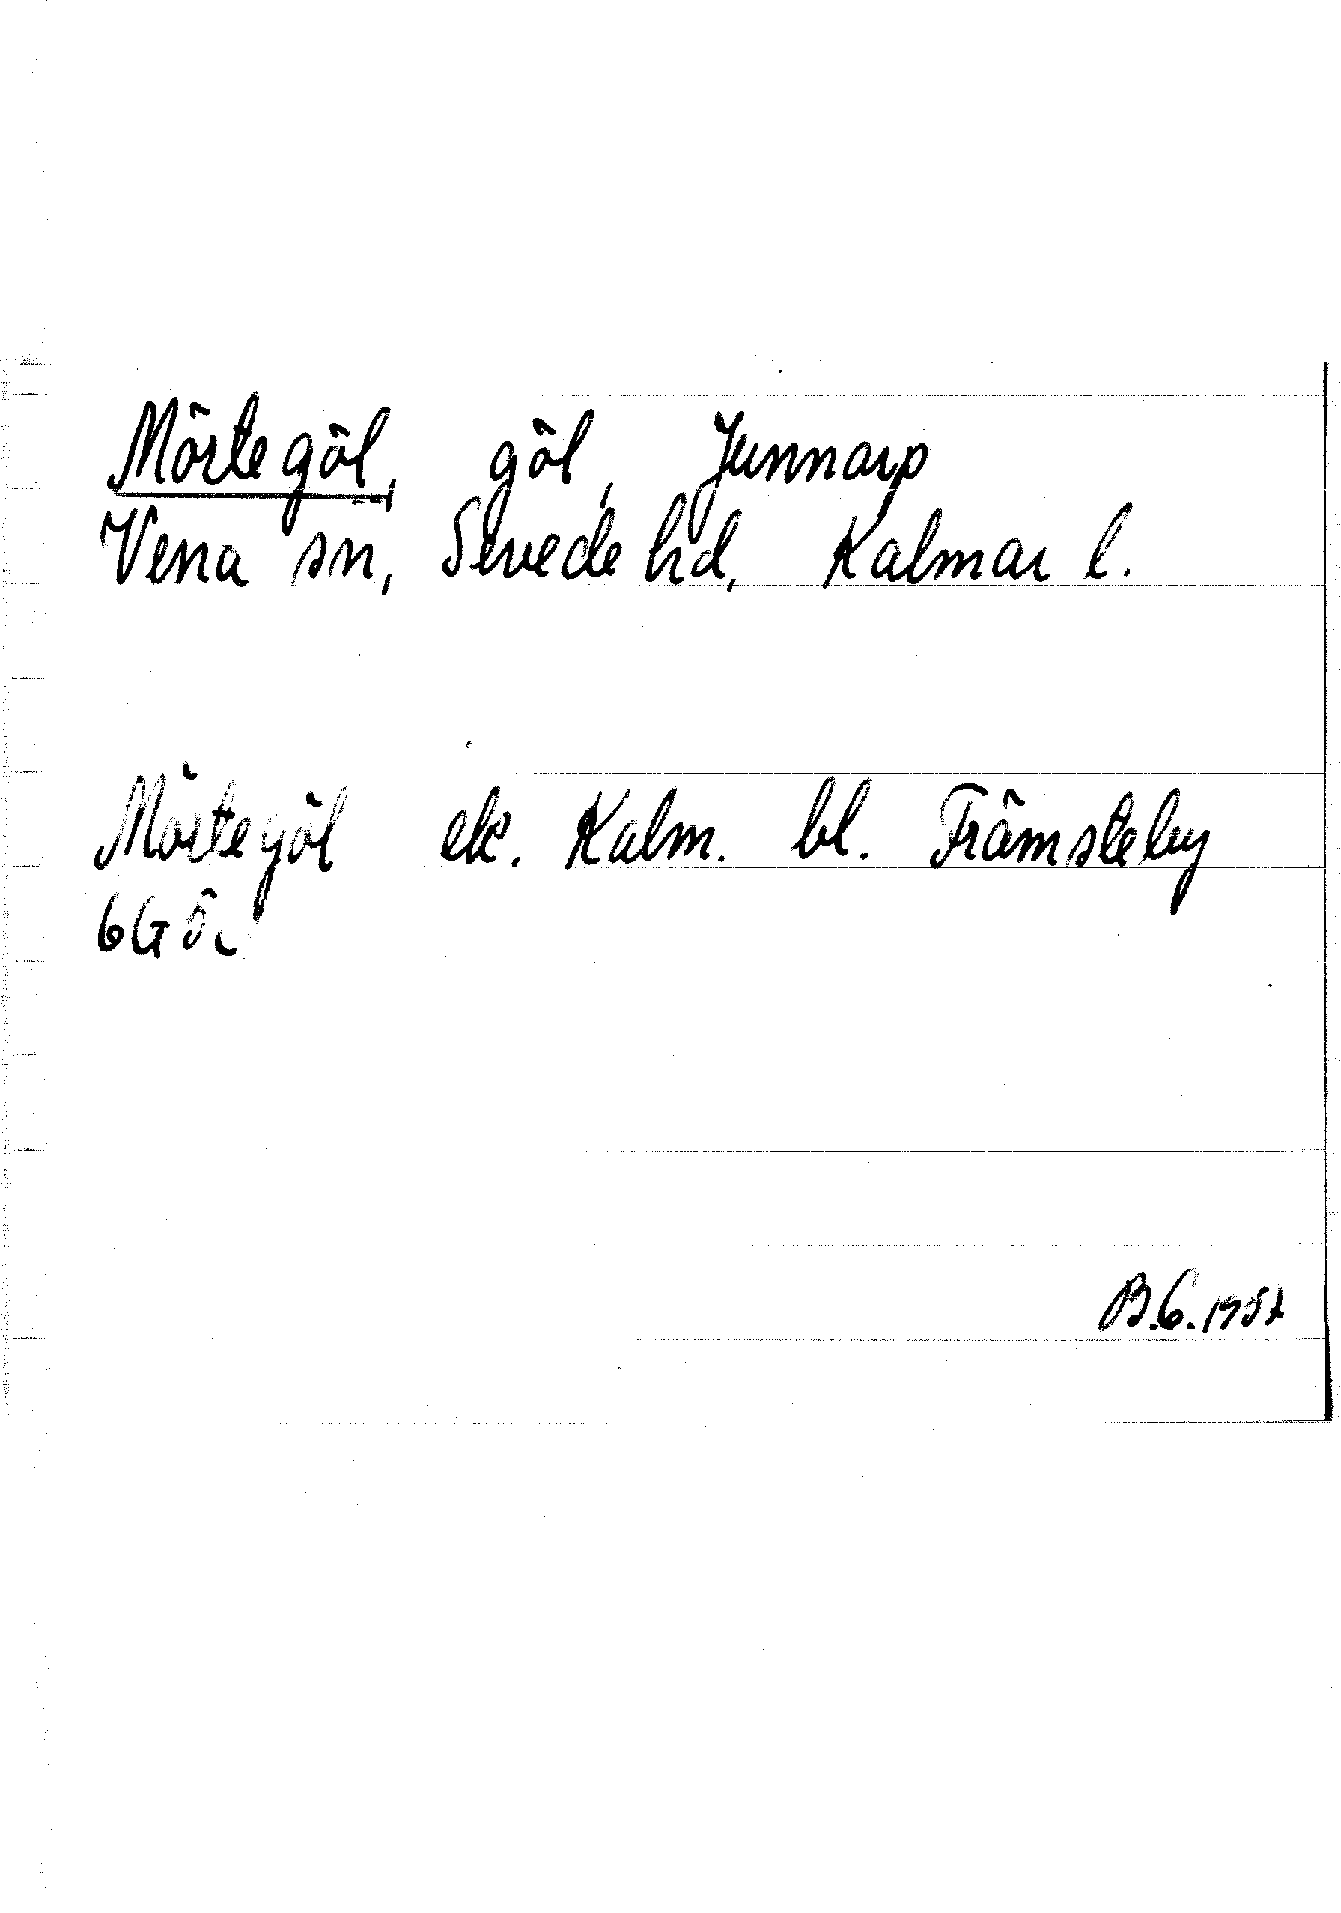 Mörtegöl, göl, Junnarp
Vena sn, Sevede hd, Kalmar l.
Mörtegöl ek. Kalm. bl. Främsteby
6G ö.
B.G. 1951